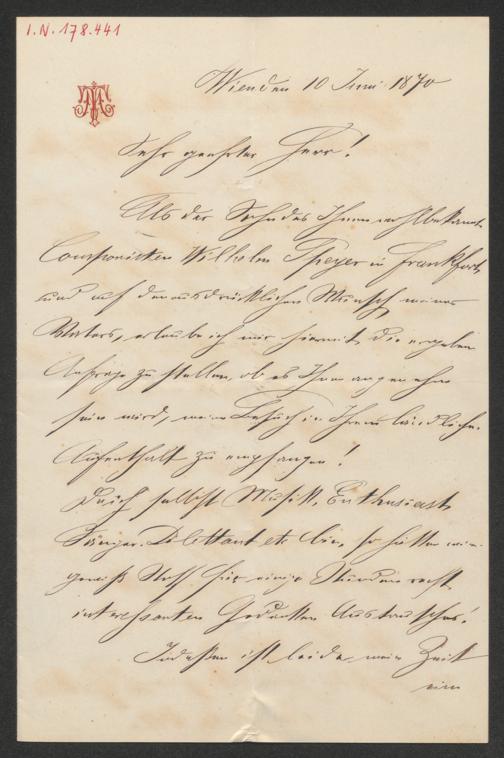 I.N. 178.441
Wien den 10 Juni 1870
Sehr geehrter Herr!
Als der Sohn des Ihnen wohlbekannten
Componisten Wilhelm Speyer in Frankfurt,
und auf den ausdrücklichen Wunsch meines
Vaters, erlaube ich mir hiermit die ergebene
Anfrage zu stellen, ob es Ihnen angenehm
sein wird, meinen Besuch in Ihrem ländlichen
Aufenthalt zu empfangen!
Da ich selbst Musik-Enthusiast,
Sänger-Dilettant etc bin, so hätten wir
gewiß Stoff für einige Stunden recht
interessanten Gedanken Austausches!
Indessen ist leider meine Zeit
eine